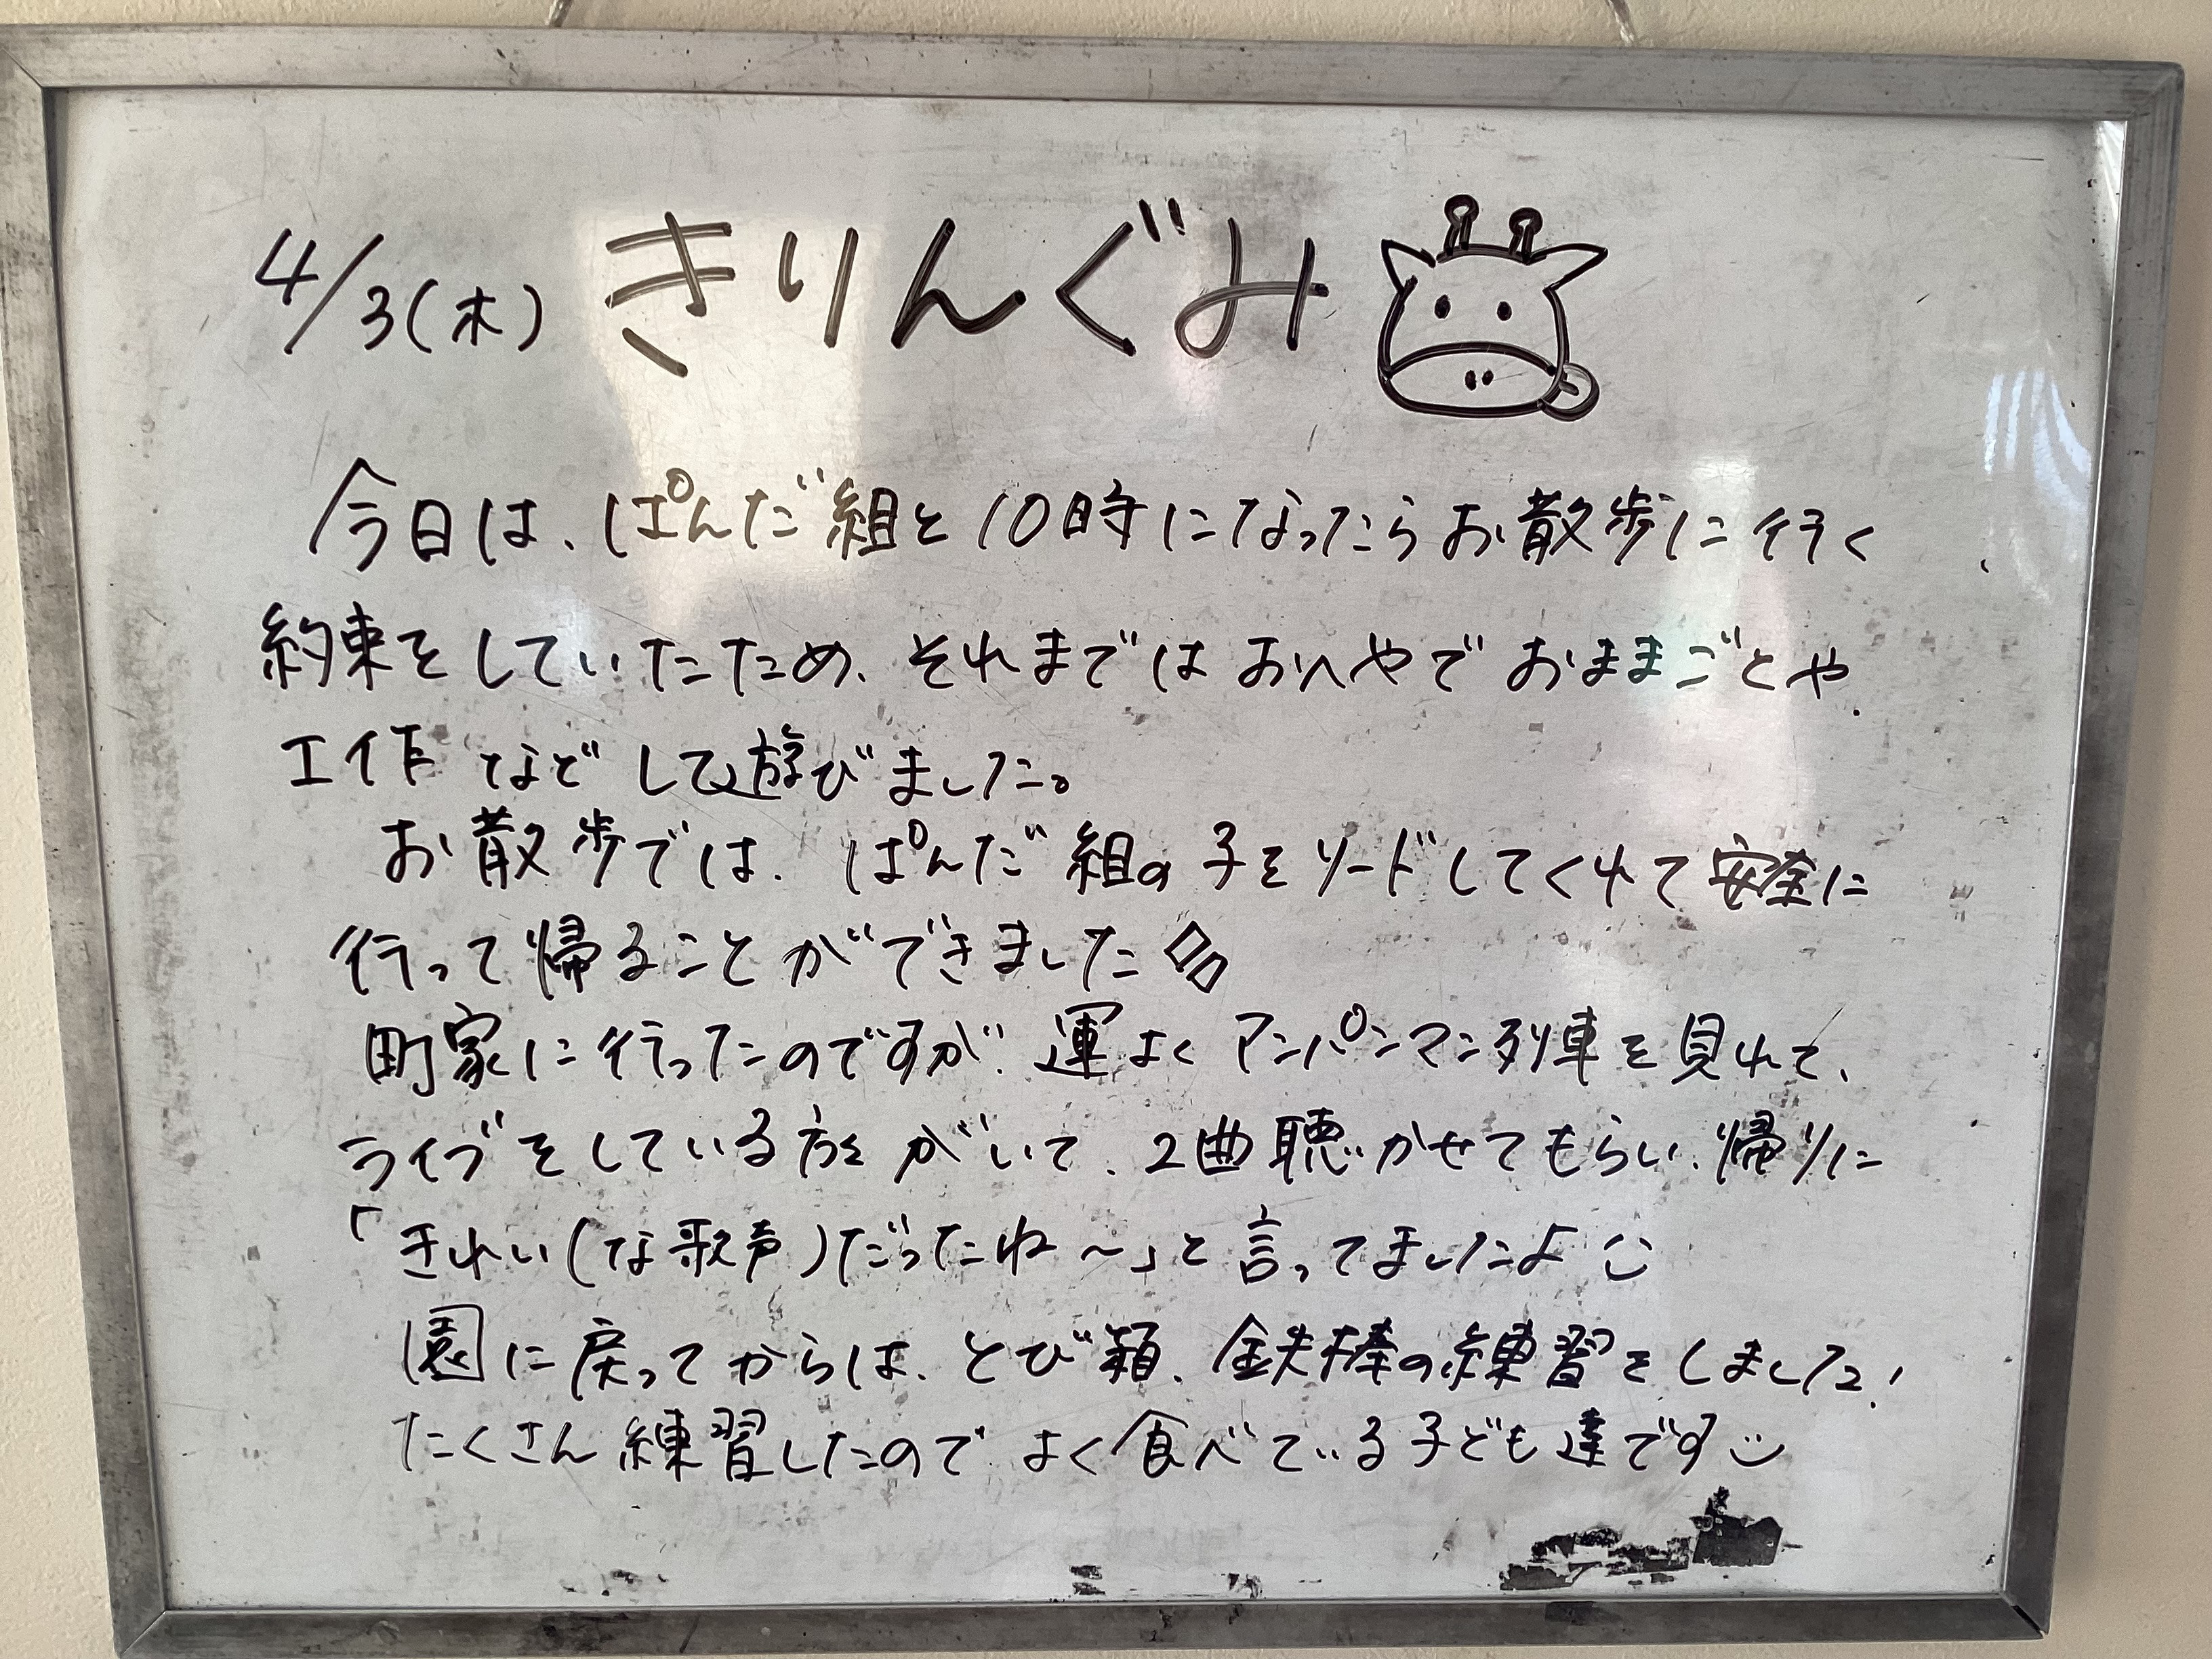 4/3(木) きりんぐみ
今日は、ぱんだ組と10時になったらお散歩に行く
約束をしていたため、それまではおへやでおままごとや
工作などして遊びました。
お散歩では、ぱんだ組の子をリードしてくれて安全に
行って帰ることができました!!
町家に行ったのですが、運よくアンパンマン列車を見れて、
ライブをしている方がいて、2曲聴かせてもらい、帰りに
「きれい(な歌声)だったね〜」と言ってましたよ
園に戻ってからは、とび箱、鉄棒の練習をしました!
たくさん練習したのでよく食べている子ども達です